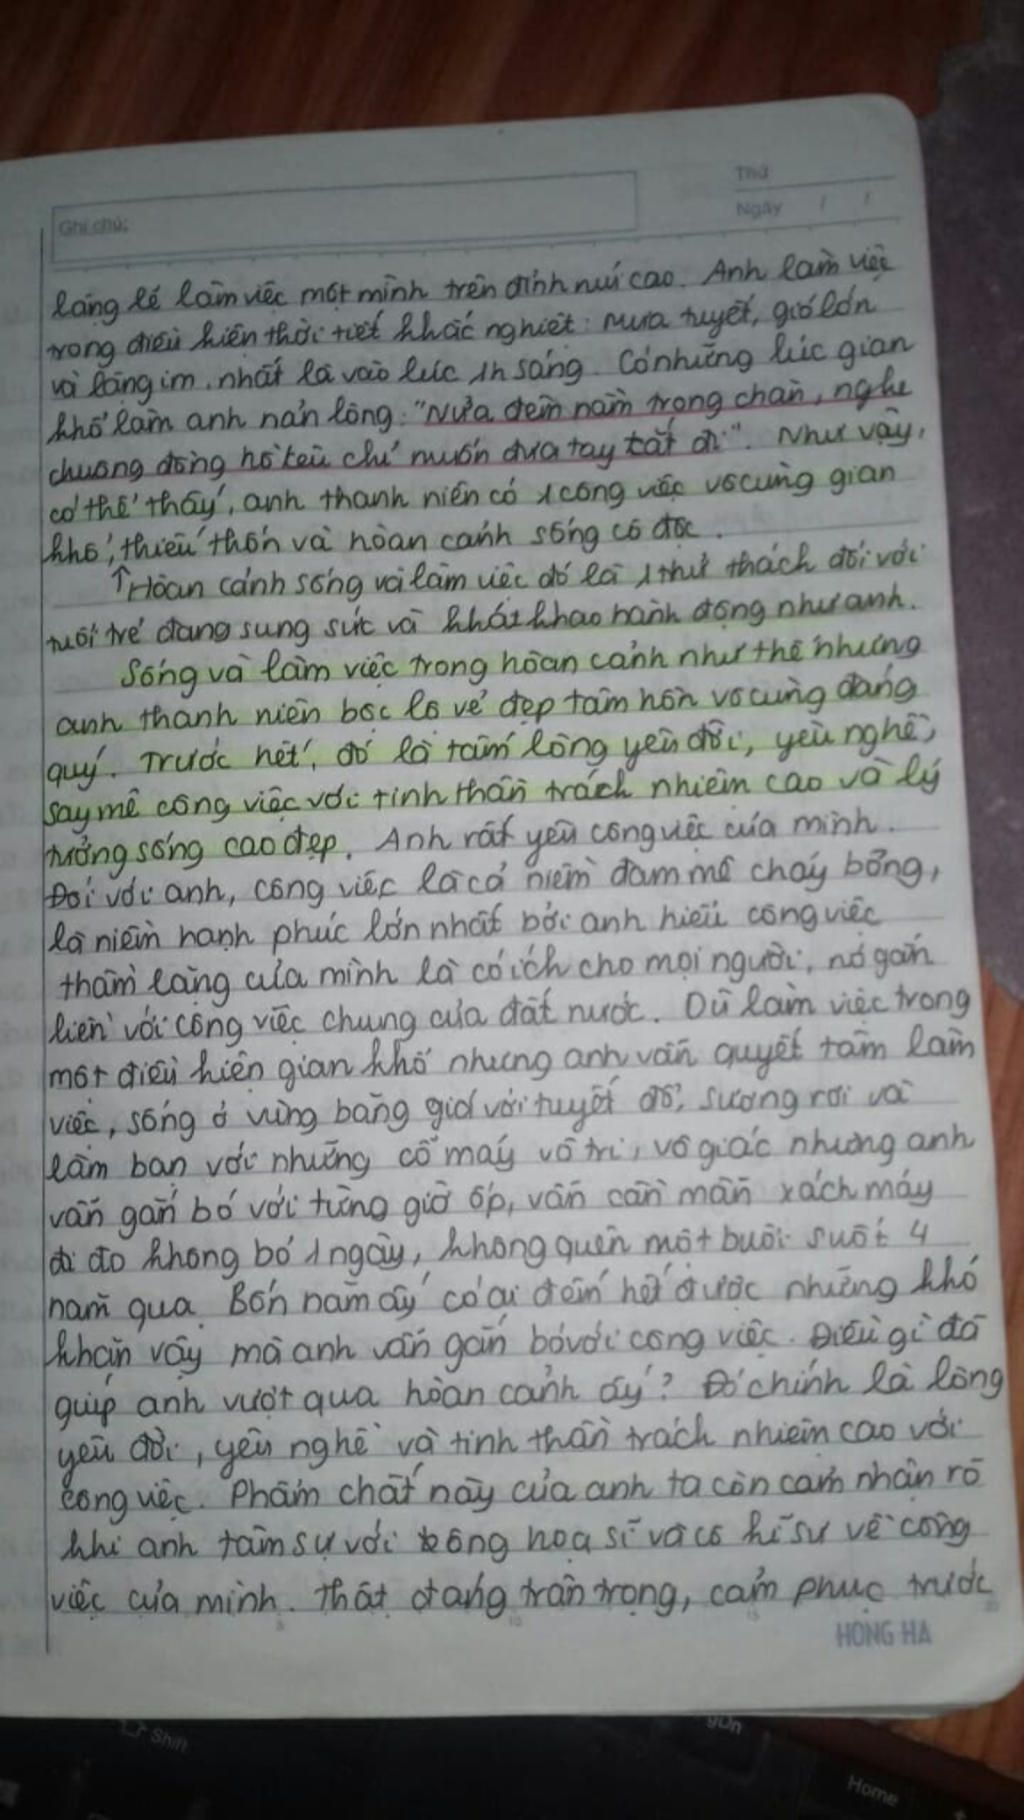 Thứ
Ghi chú:
Ngày / /
lặng lẽ làm việc một mình trên đỉnh núi cao. Anh làm việc
trong điều kiện thời tiết khắc nghiệt: mưa tuyết, gió lớn
và lặng im, nhất là vào lúc 1h sáng. Có những lúc gian
khổ làm anh nản lòng: "Nửa đêm nằm trong chăn, nghe
chuông đồng hồ kêu chỉ muốn đưa tay tắt đi". Như vậy,
có thể thấy, anh thanh niên có 1 công việc vô cùng gian
khổ, thiếu thốn và hoàn cảnh sống cô độc.
↑Hoàn cảnh sống và làm việc đó là 1 thử thách đối với
tuổi trẻ đang sung sức và khát khao hành động như anh.
Sống và làm việc trong hoàn cảnh như thế nhưng
anh thanh niên bộc lộ vẻ đẹp tâm hồn vô cùng đáng
quý. Trước hết, đó là tấm lòng yêu đời, yêu nghề,
say mê công việc với tinh thần trách nhiệm cao và lý
tưởng sống cao đẹp. Anh rất yêu công việc của mình.
Đối với anh, công việc là cả niềm đam mê cháy bỏng,
là niềm hạnh phúc lớn nhất bởi anh hiểu công việc
thầm lặng của mình là có ích cho mọi người, nó gắn
liền với công việc chung của đất nước. Dù làm việc trong
một điều kiện gian khổ nhưng anh vẫn quyết tâm làm
việc, sống ở vùng băng giá với tuyết đổ, sương rơi và
làm bạn với những cỗ máy vô tri, vô giác nhưng anh
vẫn gắn bó với từng giờ ốp, vẫn cần mẫn xách máy
đi đo không bỏ 1 ngày, không quên một buổi suốt 4
năm qua. Bốn năm ấy có ai đếm hết được những khó
khăn vậy mà anh vẫn gắn bó với công việc. Điều gì đã
giúp anh vượt qua hoàn cảnh ấy? Đó chính là lòng
yêu đời, yêu nghề và tinh thần trách nhiệm cao với
công việc. Phẩm chất này của anh ta còn cảm nhận rõ
khi anh tâm sự với ông họa sĩ và cô kĩ sư về công
việc của mình. Thật đáng trân trọng, cảm phục trước
HONG HA
Shift
Home